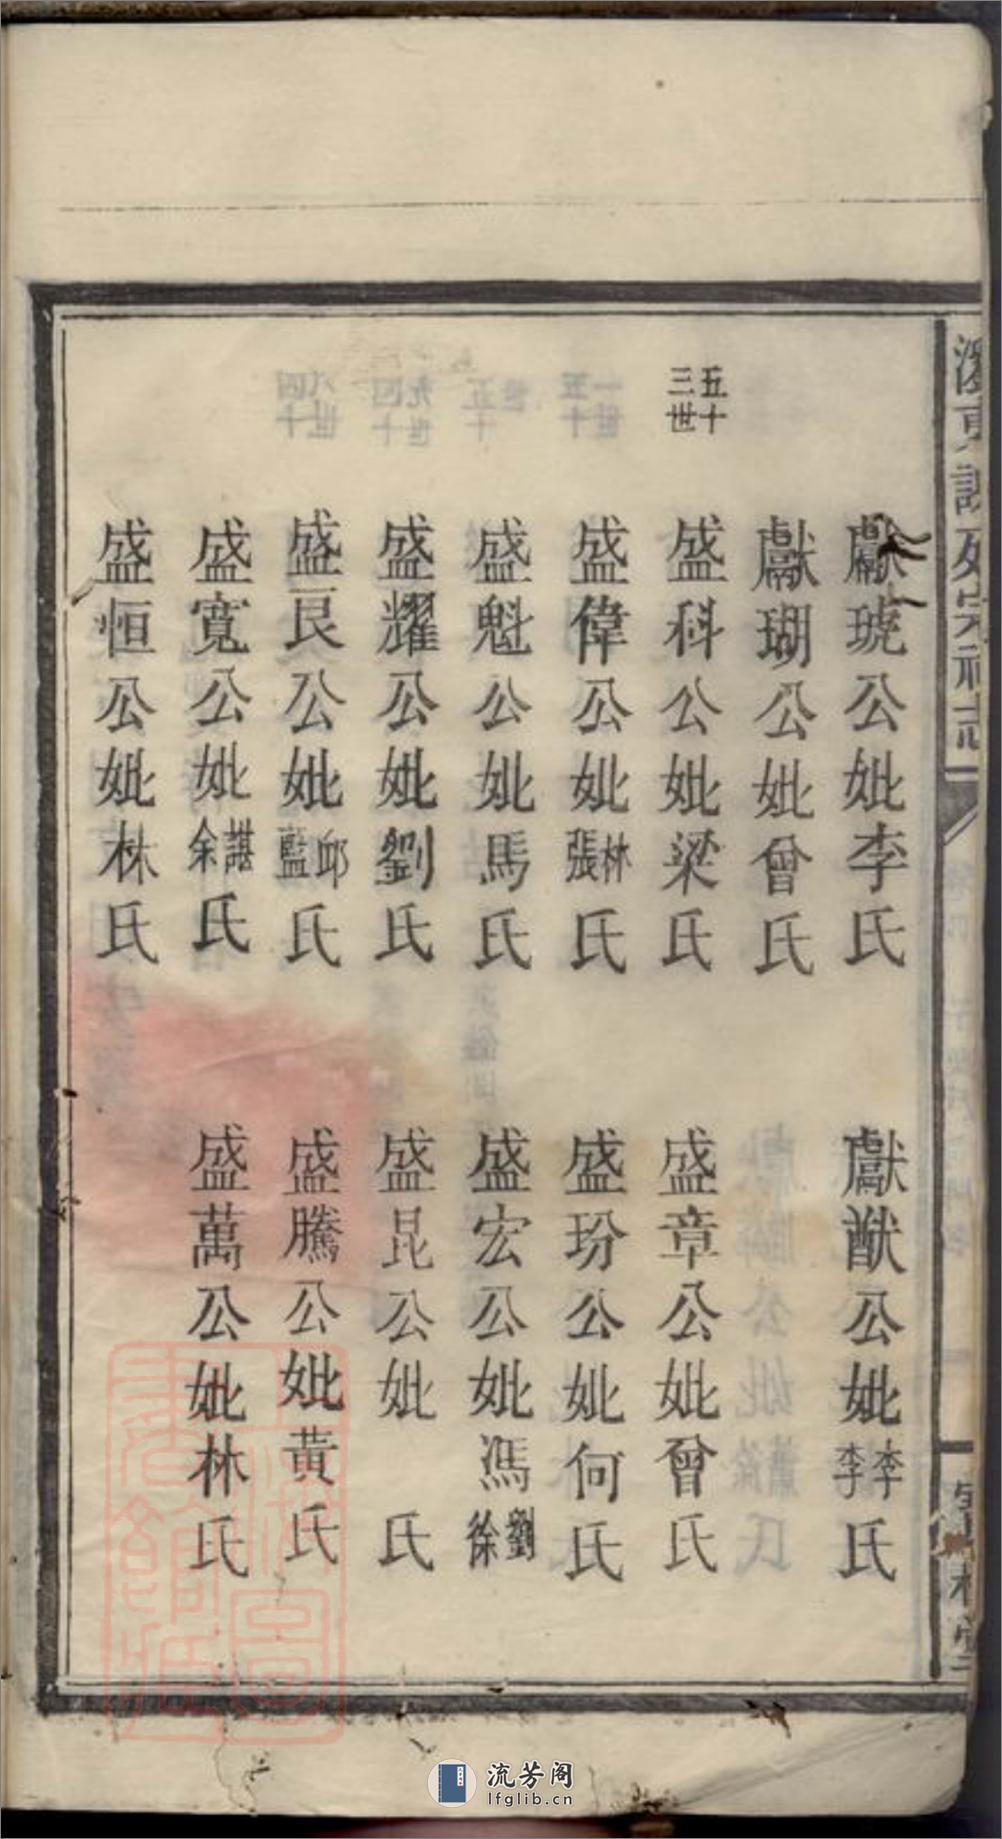 獻琥公妣李氏
獻猷公妣李李氏
獻瑚公妣曾氏
五十三世
盛科公妣梁氏
盛章公妣曾氏
盛偉公妣林張氏
盛玢公妣何氏
盛魁公妣馬氏
盛宏公妣馮劉徐
盛耀公妣劉氏
盛昆公妣氏
盛艮公妣邱藍氏
盛騰公妣黃氏
盛寬公妣諶余氏
盛萬公妣林氏
盛恒公妣林氏
流芳阁
lfglib.cn